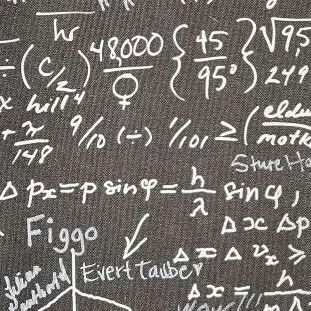 hr
÷ (c/2) 48000/♀ {45/95°} √95
249
hill⁴
+ π/148 9/10 (÷) 1/101 ≥ (
Sture
Δ px = p sin φ = h/λ sin φ,
Δx Δp
Figgo
Δx Δvx ≥
Evert Taube
Δx = h